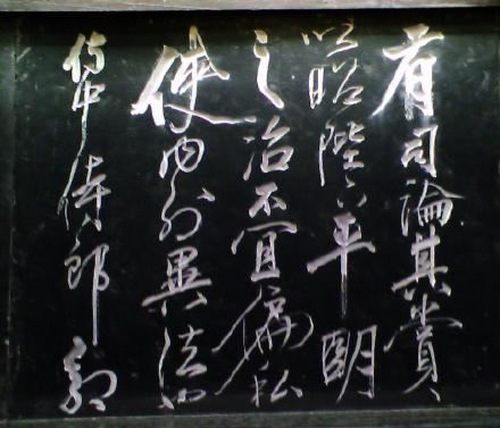 有司論其賞
以昭陛下平明
之治不宜偏私
使内外異法也
侍中侍郎郭